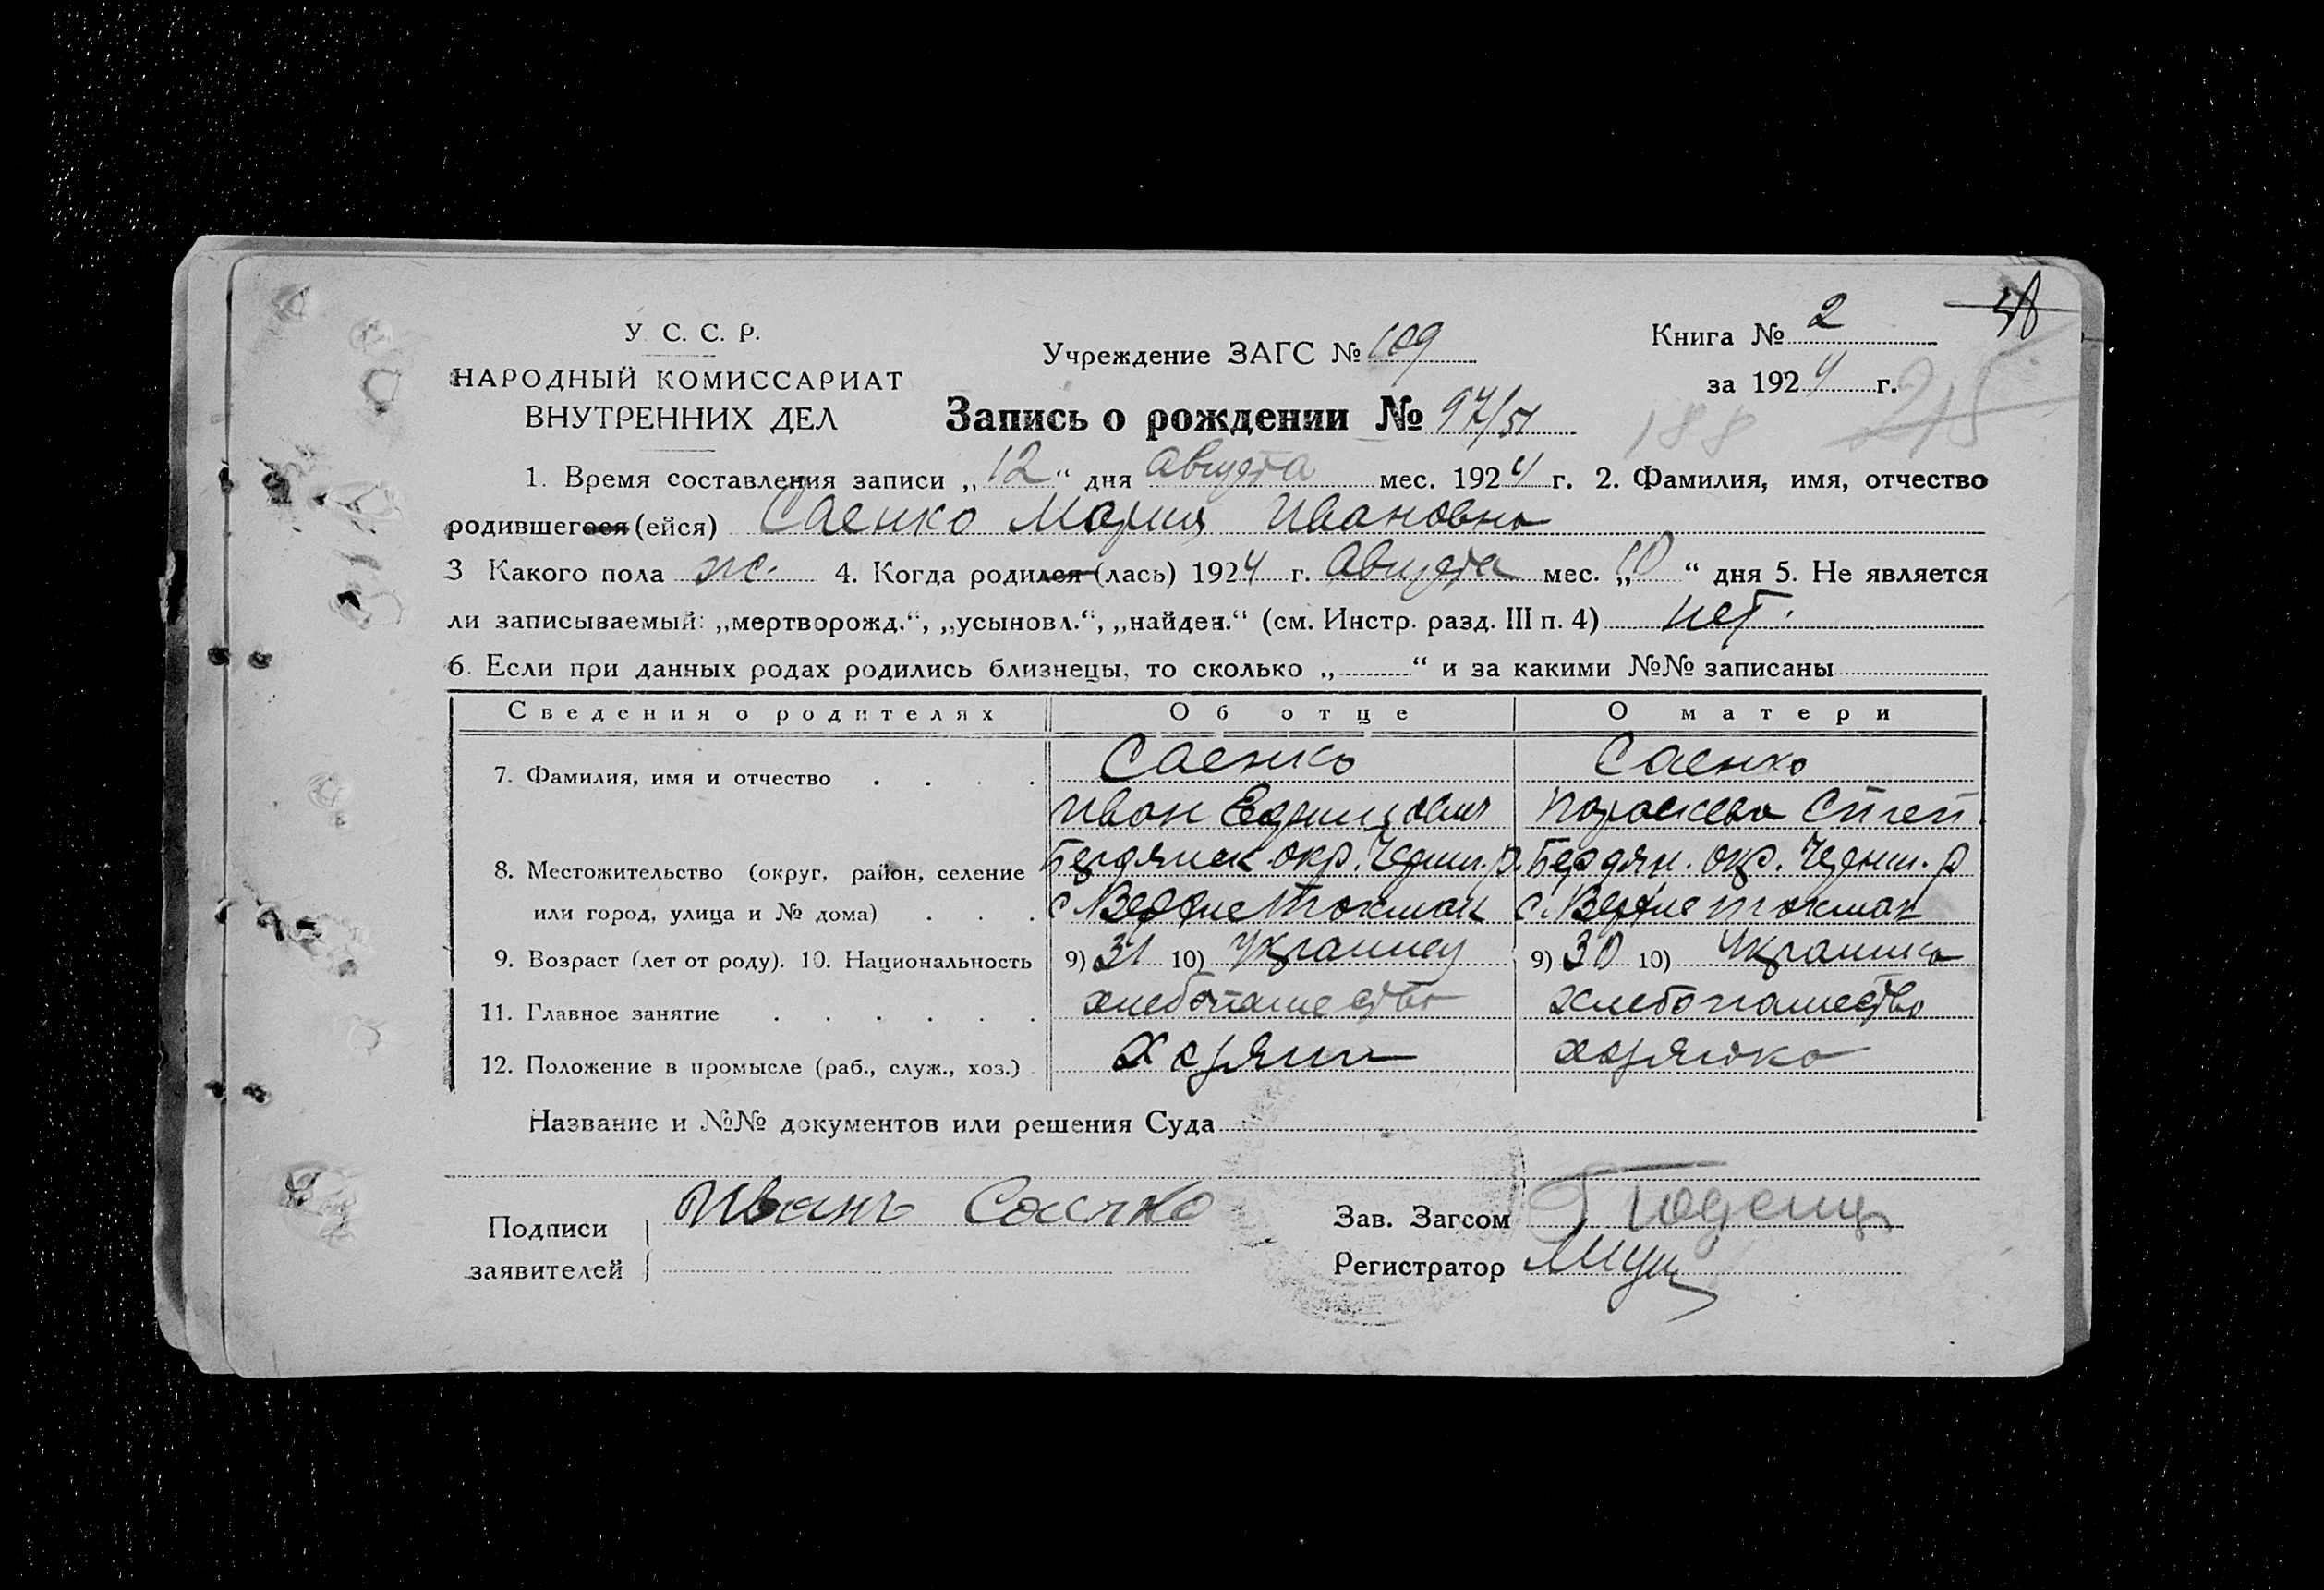 У. С. С. Р.
НАРОДНЫЙ КОМИССАРИАТ
ВНУТРЕННИХ ДЕЛ
Учреждение ЗАГС № 109
Книга № 2
за 1924 г.
188
215
Запись о рождении № 97/51
1. Время составления записи „12“ дня Августа мес. 1924 г. 2. Фамилия, имя, отчество
родившегося (ейся) Саенко Мария Ивановна
3 Какого пола ж. 4. Когда родился (лась) 1924 г. Августа мес. „10“ дня 5. Не является
ли записываемый: „мертворожд.“, „усыновл.“, „найден.“ (см. Инстр. разд. III п. 4) нет.
6. Если при данных родах родились близнецы, то сколько „ “ и за какими №№ записаны
Сведения о родителях Об отце О матери
7. Фамилия, имя и отчество . . . . Саенко Саенко
Иван Парасковия Степ.
8. Местожительство (округ, район, селение Бердянск. окр. Черниг. р. Бердян. окр. Черниг. р
или город, улица и № дома) . . . с. Верхне Токмак с. Верхне Токмак
9. Возраст (лет от роду). 10. Национальность 9) 31 10) Украинец 9) 30 10) Украинка
11. Главное занятие . . . . . . хлебопашество хлебопашество
12. Положение в промысле (раб., служ., хоз.) хозяин хозяйка
Название и №№ документов или решения Суда
Подписи заявителей Иванъ Саенко
Зав. Загсом
Регистратор